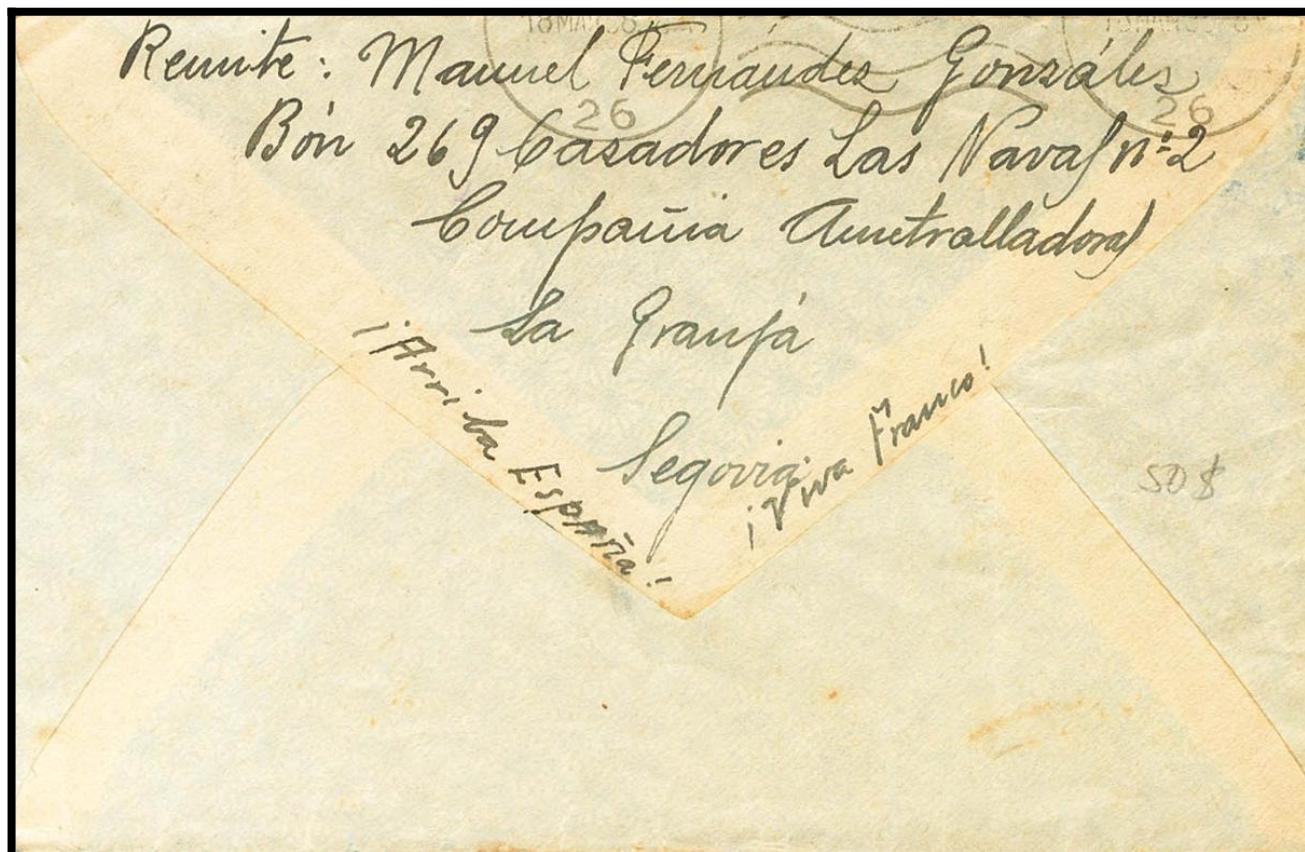 Remite: Manuel Fernández González
Bón 269 Cazadores Las Navas nº 2
Compañia Ametralladoras
La Granja
Segovia
¡Arriba España!
¡Viva Franco!
50 $
26
26